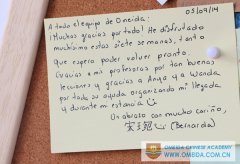 05/09/14
A todo el equipo de Oneida:
¡Muchas gracias por todo! He disfrutado
muchísimo estas siete semanas, tanto
que espero poder volver pronto.
Gracias a mis profesoras por tan buenas
lecciones y gracias a Anya y a Wanda
por toda su ayuda organizando mi llegada
y durante mi estancia
Un abrazo con mucho cariño,
(Bernarda)
OMEDA CAYXESIT ACADEMY
WWW.OMEDA.COM.CN